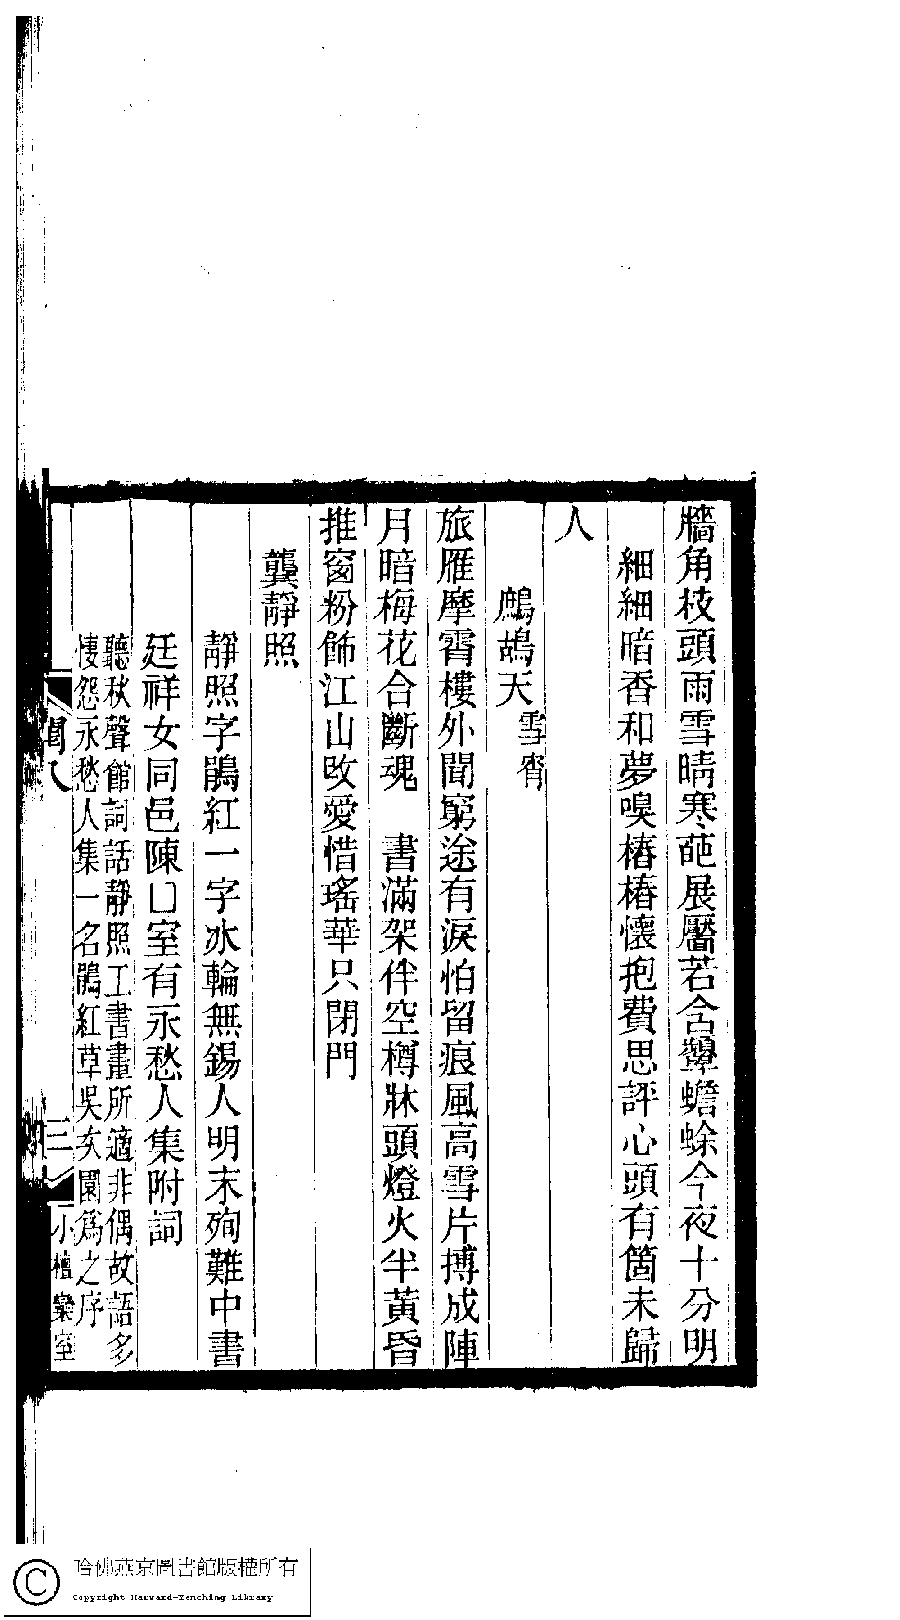 牆角枝頭雨雪晴寒葩展靨若含顰蟾蜍今夜十分明
細細暗香和夢嗅樁樁懷抱費思評心頭有箇未歸
人
鷓鴣天雪霄
旅雁摩霄樓外聞窮途有淚怕留痕風高雪片摶成陣
月暗梅花合斷魂　書滿架伴空樽牀頭燈火半黃昏
推窗粉飾江山改愛惜瑤華只閉門
龔靜照
靜照字鵑紅一字冰輪無錫人明末殉難中書
廷祥女同邑陳口室有永愁人集附詞
聽秋聲館詞話靜照工書畫所適非偶故語多
悽怨永愁人集一名鵑紅草吳友園爲之序
閨八
三
小檀欒室
哈佛燕京圖書館版權所有
Copyright Harvard-Yenching Library